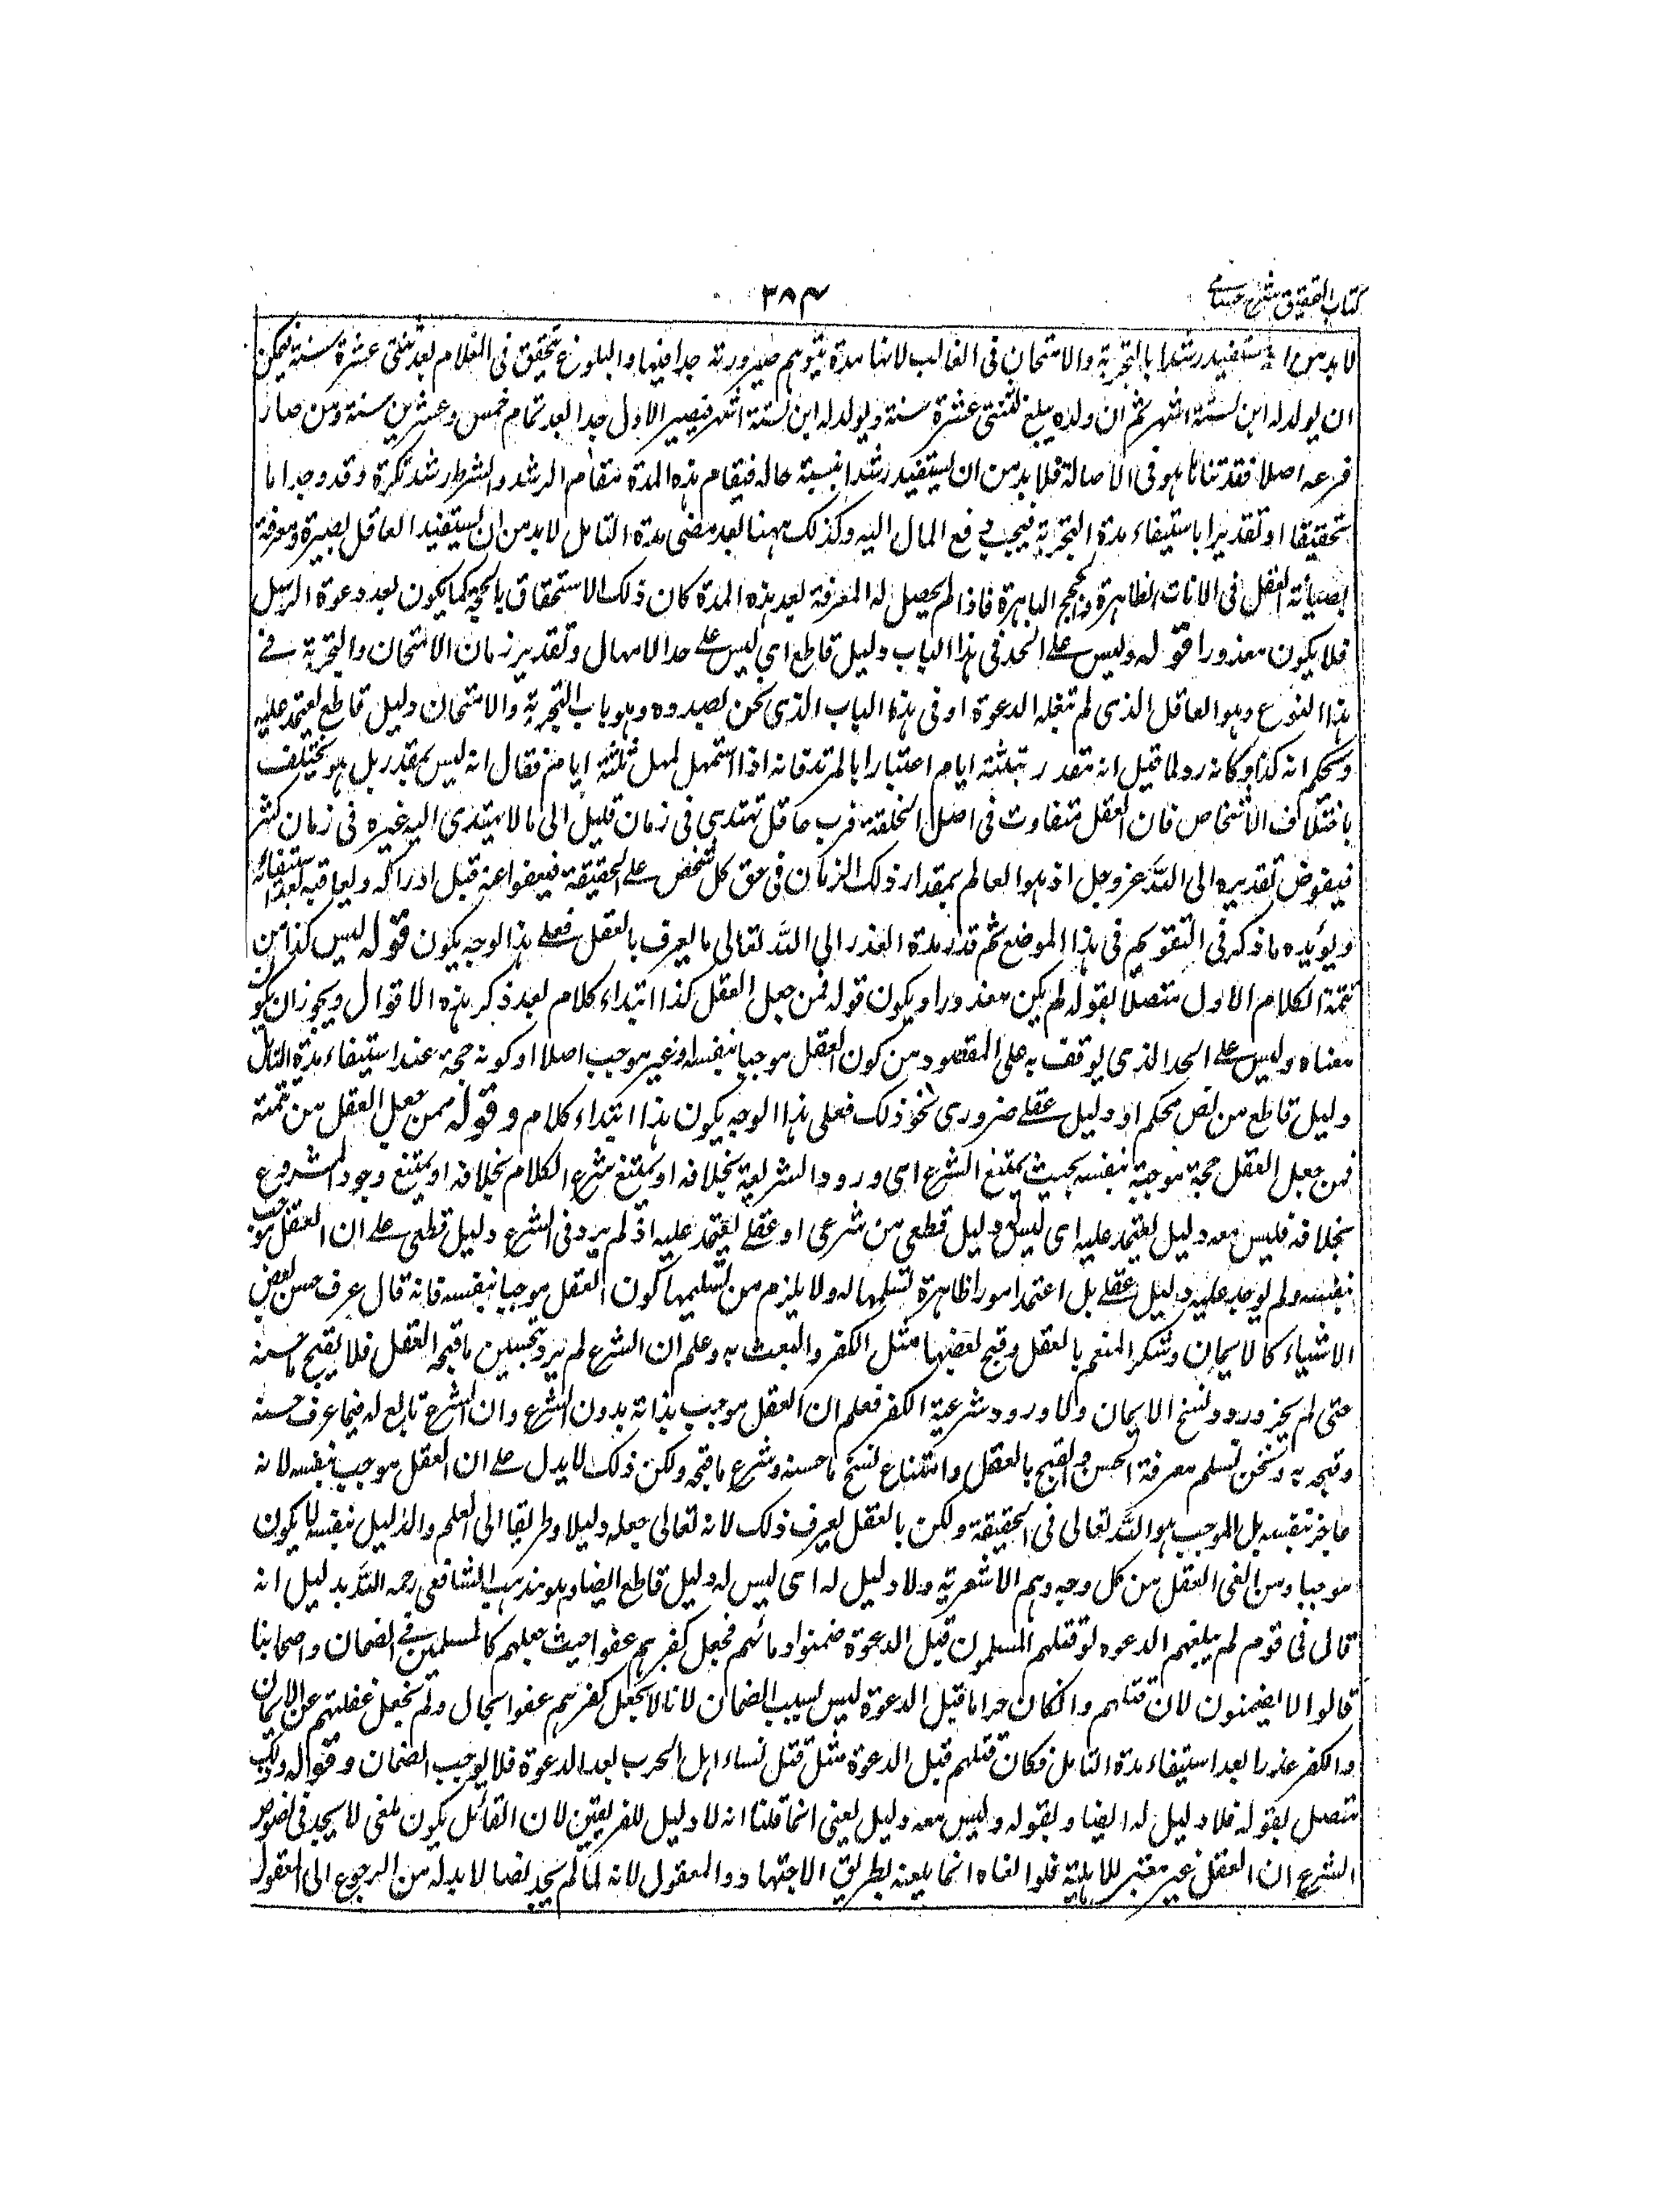 كتاب التحقيق شرح حسامي
٣٨٤
لا بد من ان يستفيد رشدا بالتجربة والامتحان في الغالب لانها مدة يتوهم صيرورته جدا فيها والبلوغ يتحقق في الغلام بعد ثنتي عشرة سنة فيمكن
ان يولد له ابن لستة اشهر ثم ان ولده يبلغ لثنتي عشرة سنة ويولد له ابن لستة اشهر فيصير الاول جدا بعد تمام خمس وعشرين سنة ومن صار
فرعه اصلا فقد تناهى هو في الاصالة فلا بد من ان يستفيد رشدا بنسبة حاله فيقام هذه المدة مقام الرشد والشرط رشد نكرة وقد وجد اما
تحقيقا او تقديرا باستيفاء مدة التجربة فيجب دفع المال اليه وكذلك ههنا بعد مضى مدة التامل لا بد من ان يستفيد العاقل بصيرة ومعرفة
بصيانة العقل في الايات الظاهرة والحجج الباهرة فاذا لم يحصل له المعرفة بعد هذه المدة كان ذلك الاستحقاق بالحجة كما يكون بعد دعوة الرسل
فلا يكون معذورا قوله وليس على الحد في هذا الباب دليل قاطع اي ليس على حد الامهال وتقدير زمان الامتحان والتجربة في
هذا النوع وهو العاقل الذي لم تبلغه الدعوة او في هذا الباب الذي نحن بصدده وهو باب التجربة والامتحان دليل قاطع يعتمد عليه
ويحكم انه كذا وكانه رد لما قيل انه مقدر بثلثة ايام اعتبارا بالمرتد فانه اذا استمهل يمهل ثلثة ايام فقال انه ليس بمقدر بل هو يختلف
باختلاف الاشخاص فان العقل متفاوت في اصل الخلقة فرب عاقل تهتدي في زمان قليل الى ما لا يهتدي اليه غيره في زمان كثير
فيفوض تقديره الى الله عز وجل اذ هو العالم بمقدار ذلك الزمان في حق كل شخص على الحقيقة فيعفوا عنه قبل ادراكه ويعاقبه بعد استيفائه
ويؤيده ما ذكر في التقويم في هذا الموضع ثم قدر مدة العذر الى الله تعالى ما يعرف بالعقل فعلى هذا الوجه يكون قوله ليس كذا من
تتمة الكلام الاول متصلا بقوله لم يكن معذورا ويكون قوله فمن جعل العقل كذا ابتداء كلام بعد ذكر هذه الاقوال ويجوز ان يكون
معناه وليس على الحد الذي يوقف به على المقصود من كون العقل موجبا بنفسه او غير موجب اصلا او كونه حجة عند استيفاء مدة التامل
دليل قاطع من نص محكم او دليل عقلي ضروري نحو ذلك فعلى هذا الوجه يكون هذا ابتداء كلام وقوله فمن جعل العقل من تتمته
فمن جعل العقل حجة موجبة بنفسه بحيث يمتنع الشرع اى ورود الشريعة بخلافه او يمتنع شرع الكلام بخلافه او يمتنع وجود المشروع
بخلافه فليس معه دليل يعتمد عليه اى ليس له دليل قطعي من شرعى او عقلي يعتمد عليه اذ لم يرد في الشرع دليل قطعى على ان العقل موجب
بنفسه ولم يوجد عليه دليل عقلي بل اعتمد امورا ظاهرة نسلمها له ولا يلزم من تسليمها كون العقل موجبا بنفسه فانه قال عرف حسن بعض
الاشياء كالايمان وشكر المنعم بالعقل وقبح بعضها مثل الكفر والبعث به وعلم ان الشرع لم يرد بتحسين ما قبحه العقل فلا يقبح ما حسنه
حتى لم يجز ورود نسخ الايمان ولا ورود شرعية الكفر فعلم ان العقل موجب بذاته بدون الشرع وان الشرع تابع له فيما عرف حسنه
وقبحه به ونحن نسلم معرفة الحسن والقبح بالعقل وامتناع نسخ ما حسنه وشرع ما قبحه ولكن ذلك لا يدل على ان العقل موجب بنفسه لانه
عاجز بنفسه بل الموجب هو الله تعالى في الحقيقة ولكن بالعقل يعرف ذلك لانه تعالى جعله دليلا وطريقا الى العلم والدليل بنفسه لا يكون
موجبا ومن الغى العقل من كل وجه وهم الاشعرية ولا دليل له اى ليس له دليل قاطع ايضا وهو مذهب الشافعى رحمه الله بدليل انه
قال في قوم لم يبلغهم الدعوة لو قتلهم المسلمون قبل الدعوة ضمنوا دمائهم فجعل كفرهم عفوا حيث جعلهم كالمسلمين في الضمان واصحابنا
قالوا لا يضمنون لان قتلهم وان كان حراما قبل الدعوة ليس بسبب الضمان لانا لا نجعل كفرهم عفوا بحال ولم نجعل غفلتهم عن الايمان
والكفر عذرا بعد استيفاء مدة التامل فكان قتلهم قبل الدعوة مثل قتل نساء اهل الحرب بعد الدعوة فلا يوجب الضمان وقوله وذلك
متصل بقوله فلا دليل له ايضا وبقوله وليس معه دليل يعنى انما قلنا انه لا دليل للفريقين لان القائل بكون ملغى لا يجد في نصوص
الشرع ان العقل غير معتبر للاهلية فلو الغاه انما يلغيه بطريق الاجتهاد والمعقول لانه لما لم يجد نصا لا بد له من الرجوع الى المعقول